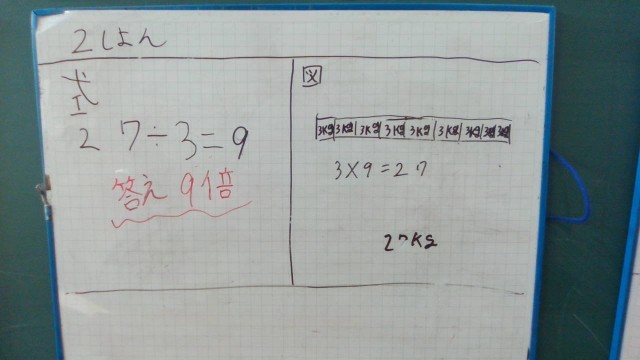 2しよん
式
27÷3=9
答え 9倍
図
3Kg 3Kg 3Kg 3Kg 3Kg 3Kg 3Kg 3Kg 3Kg
3×9=27
27Kg